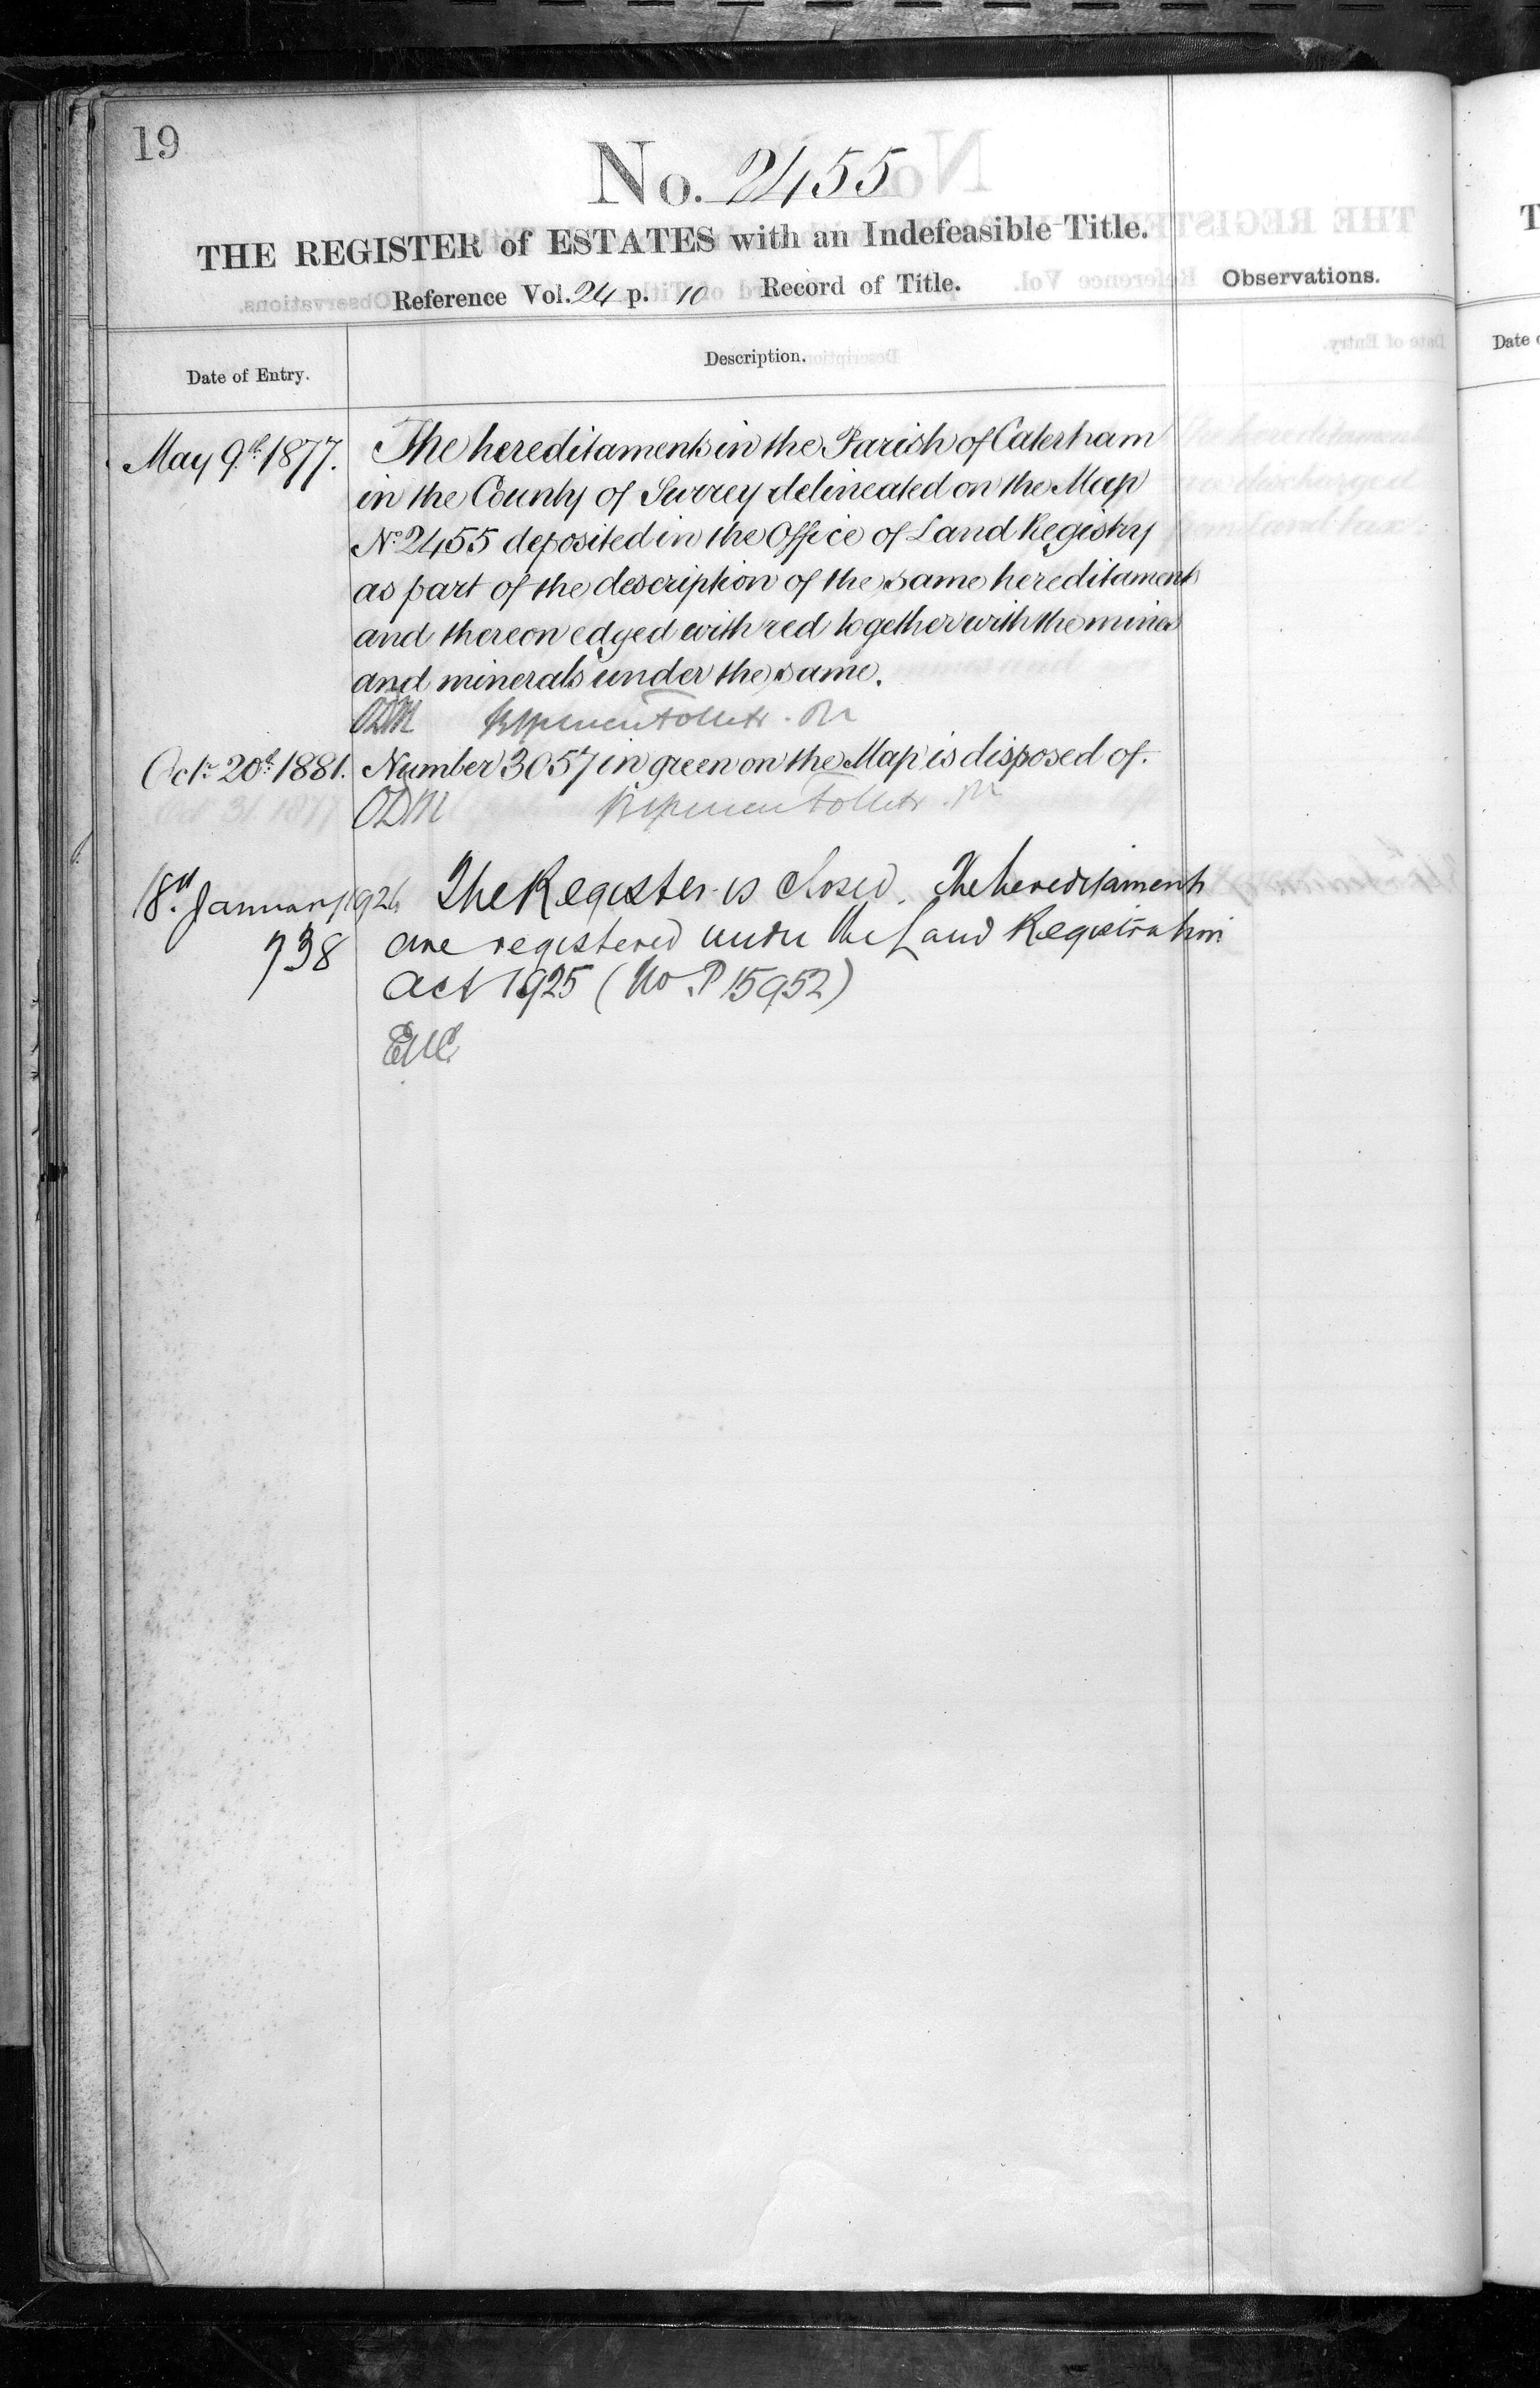 19
No. 2455
THE REGISTER of ESTATES with an Indefeasible Title.
Reference Vol. 24 p. 10 Record of Title.
Observations.
Date of Entry.
Description.
May 9th 1877. The hereditaments in the Parish of Caterham
in the County of Surrey delineated on the Map
No 2455 deposited in the Office of Land Registry
as part of the description of the same hereditaments
and thereon edged with red together with the mines
and minerals under the same.
ODM
Octr 20th 1881. Number 3057 in green on the Map is disposed of.
ODM
18th January 1926 The Register is closed. The hereditaments
738 are registered under the Land Registration
Act 1925 (No P 15952)
T
Date